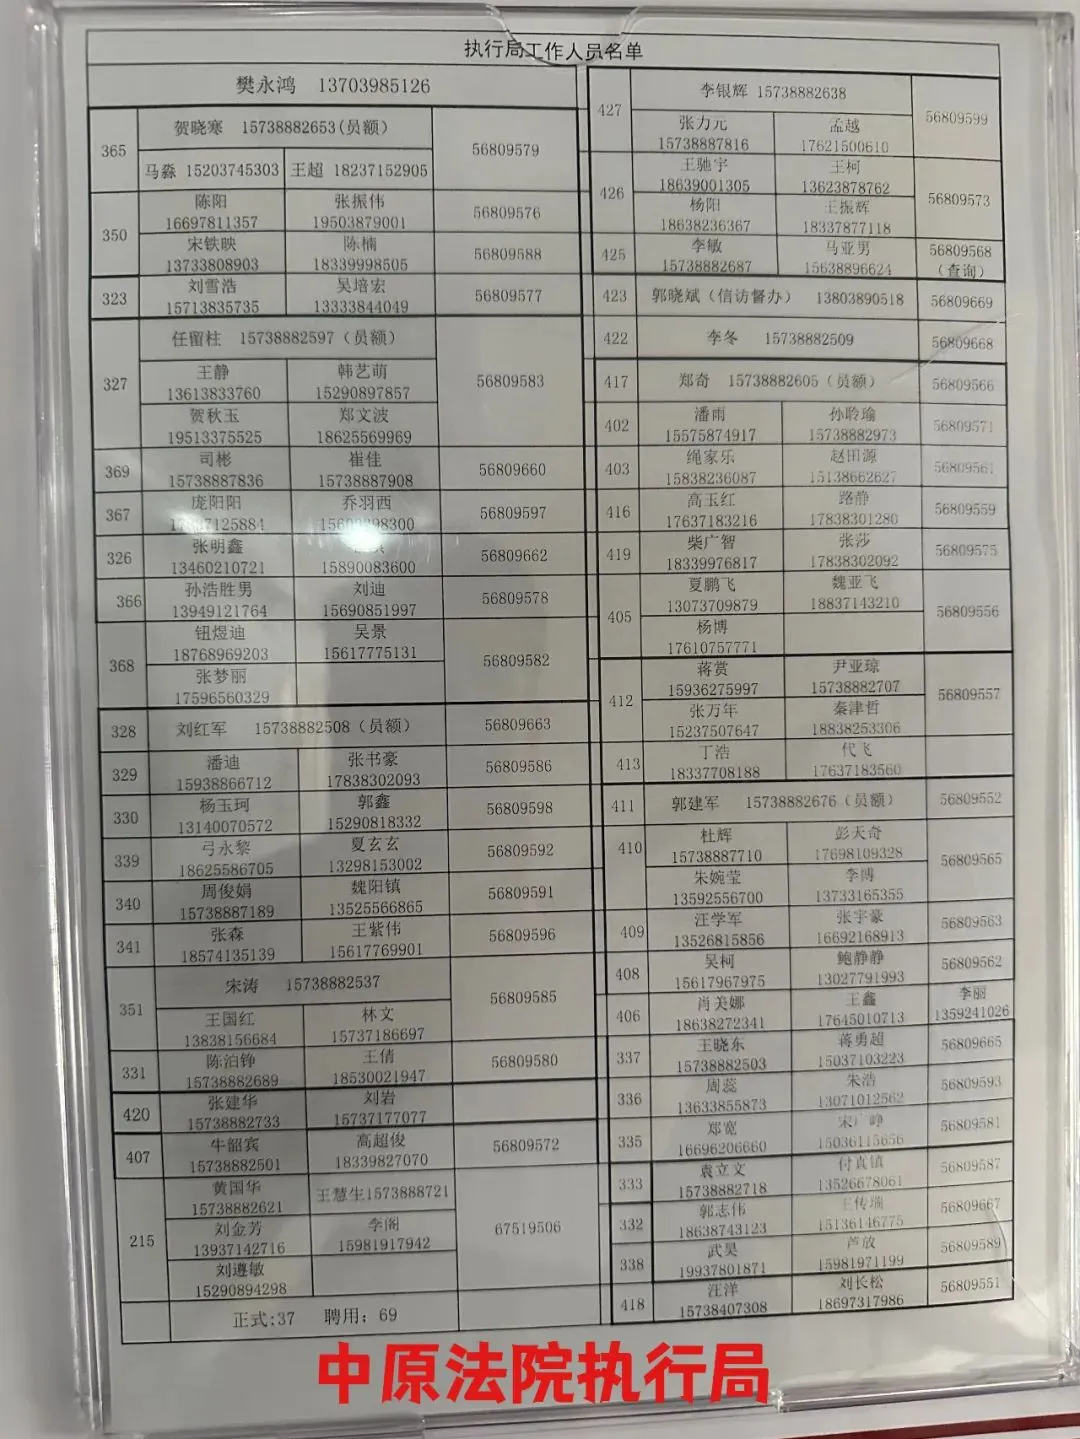 执行局工作人员名单
樊永鸿 13703985126
365
贺晓寒 15738882653(员额)
马淼 15203745303 王超 18237152905
56809579
350
陈阳 张振伟
16697811357 19503879001
56809576
宋铁映 陈楠
13733808903 18339998505
56809588
323
刘雪浩 吴培宏
15713835735 13333844049
56809577
327
任留柱 15738882597(员额)
王静 韩艺萌
13613833760 15290897857
贺秋玉 郑文波
19513375525 18625569969
56809583
369
司彬 崔佳
15738887836 15738887908
56809660
367
庞阳阳 乔羽西
56809597
326
张明鑫
13460210721 15890083600
56809662
366
孙浩胜男 刘迪
13949121764 15690851997
56809578
368
钮煜迪 吴景
18768969203 15617775131
张梦丽
17596560329
56809582
328
刘红军 15738882508(员额)
56809663
329
潘迪 张书豪
15938866712 17838302093
56809586
330
杨玉珂 郭鑫
13140070572 15290818332
56809598
339
弓永黎 夏玄玄
18625586705 13298153002
56809592
340
周俊娟 魏阳镇
15738887189 13525566865
56809591
341
张森 王紫伟
18574135139 15617769901
56809596
351
宋涛 15738882537
王国红 林文
13838156684 15737186697
56809585
331
陈泊铮 王倩
15738882689 18530021947
56809580
420
张建华 刘岩
15738882733 15737177077
407
牛韶宾 高超俊
15738882501 18339827070
56809572
215
黄国华 王慧生1573888721
15738882621
刘金芳 李阁
13937142716 15981917942
刘遵敏
15290894298
67519506
正式:37 聘用:69
427
李银辉 15738882638
张力元 孟越
15738887816 17621500610
56809599
426
王驰宇 王柯
18639001305 13623878762
杨阳 王振辉
18638236367 18337877118
56809573
425
李敏 马亚男
15738882687 15638896624
56809568
(查询)
423
郭晓斌(信访督办) 13803890518
56809669
422
李冬 15738882509
56809668
417
郑奇 15738882605(员额)
56809566
402
潘雨 孙聆瑜
15575874917 15738882973
56809571
403
绳家乐 赵田源
15838236087 15138662627
56809561
416
高玉红 路静
17637183216 17838301280
56809559
419
柴广智 张莎
18339976817 17838302092
56809575
405
夏鹏飞 魏亚飞
13073709879 18837143210
杨博
17610757771
56809556
412
蒋赏 尹亚琼
15936275997 15738882707
张万年 秦津哲
15237507647 18838253306
56809557
413
丁浩 代飞
18337708188 17637183560
411
郭建军 15738882676(员额)
56809552
410
杜辉 彭天奇
15738887710 17698109328
朱婉莹 李博
13592556700 13733165355
56809565
409
汪学军 张宇豪
13526815856 16692168913
56809563
408
吴柯 鲍静静
15617967975 13027791993
56809562
406
肖美娜 王鑫 李丽
18638272341 17645010713 1359241026
337
王晓东 蒋勇超
15738882503 15037103223
56809665
336
周蕊 朱浩
13633855873 13071012562
56809593
335
郑宽
16696206660 15036115656
56809581
333
袁立文 付真镇
15738882718 13526678061
56809587
332
郭志伟 王传瑞
18638743123 15136146775
56809667
338
武昊 芦放
19937801871 15981971199
56809589
418
汪洋 刘长松
15738407308 18697317986
56809551
中原法院执行局